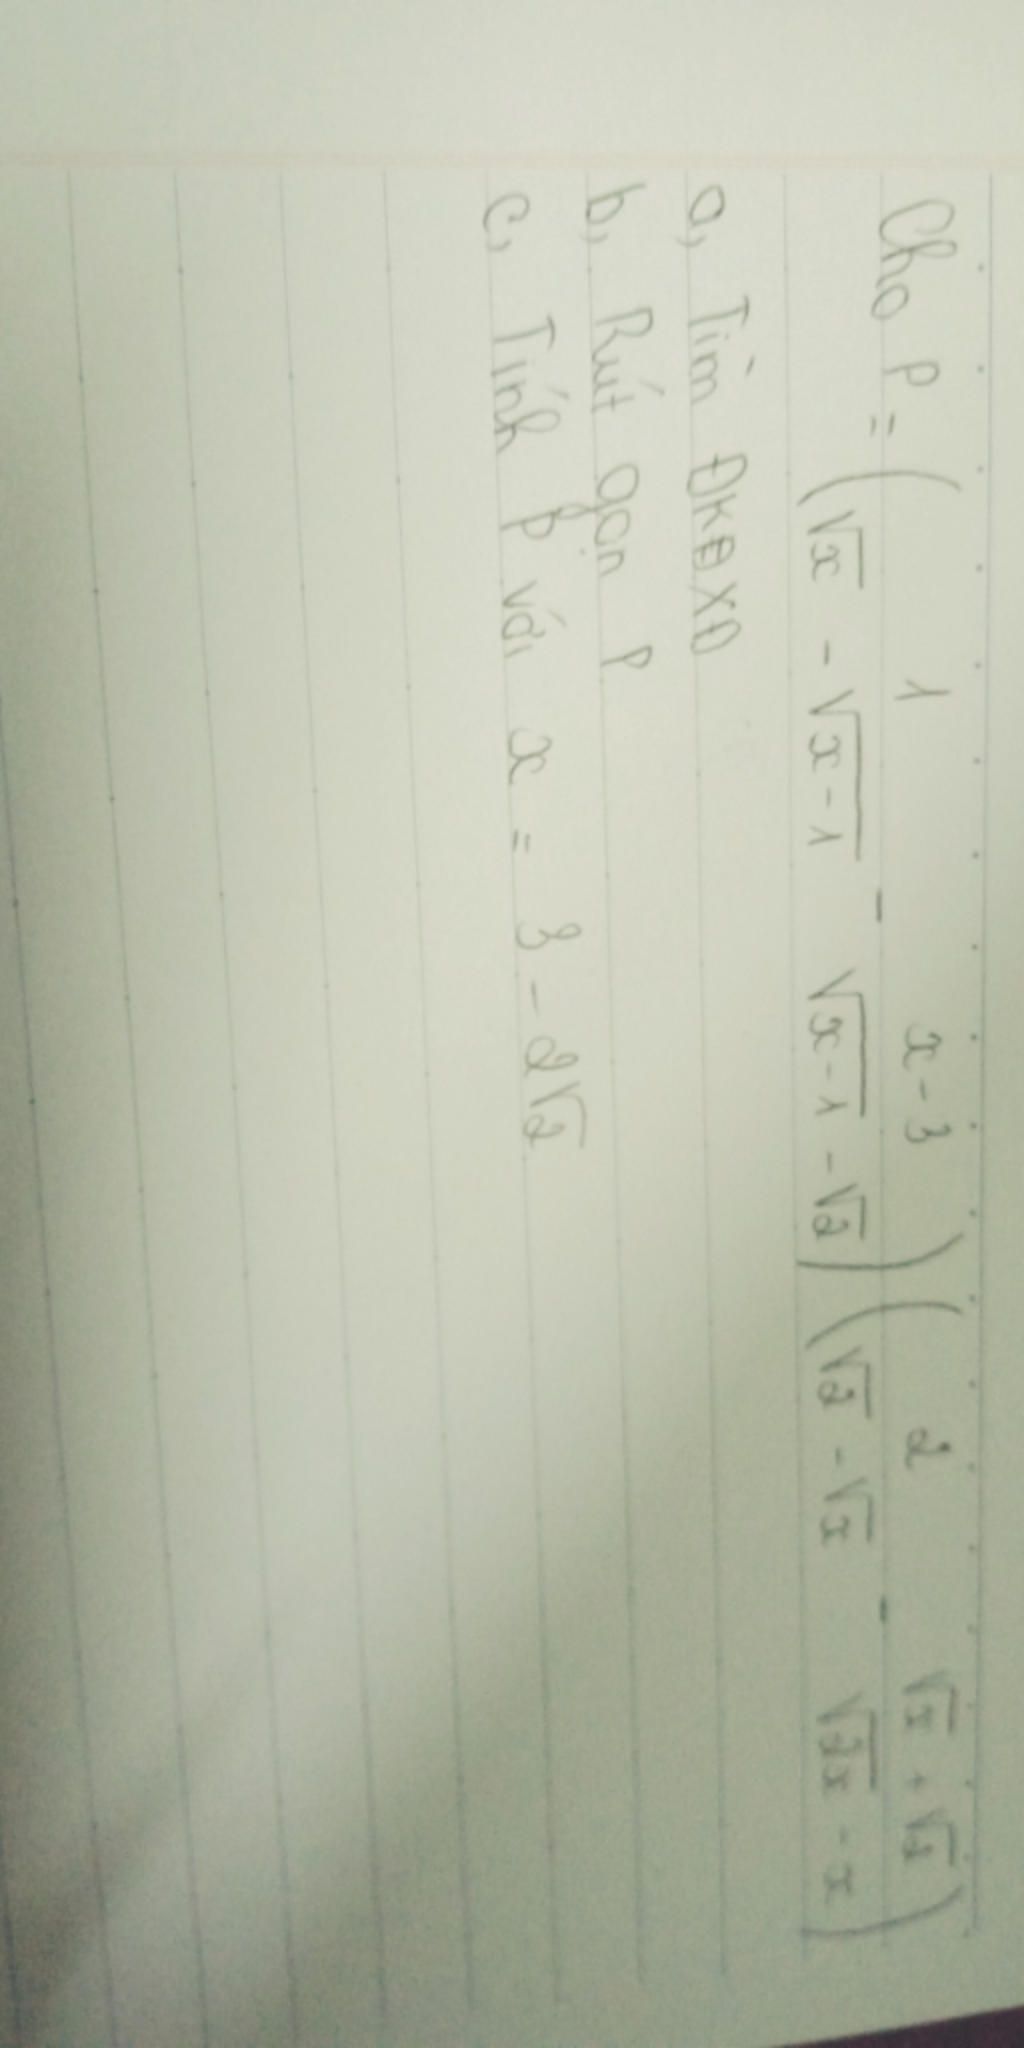 Cho P = (1/(√x - √(x-1)) - (x-3)/(√(x-1) - √2)) (2/(√2 - √x) - (√x + √2)/(√(2x) - x))
a, Tìm ĐKĐXĐ
b, Rút gọn P
c, Tính P với x = 3 - 2√2